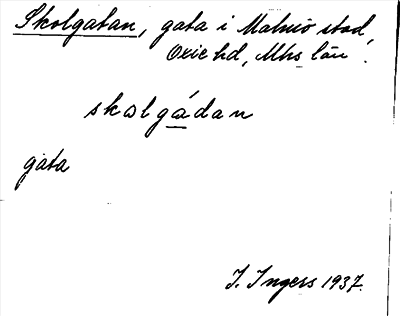 Skolgatan, gata i Malmö stad,
Oxie hd, Mhs län.
skolgádan
gata
I. Ingers 1937.